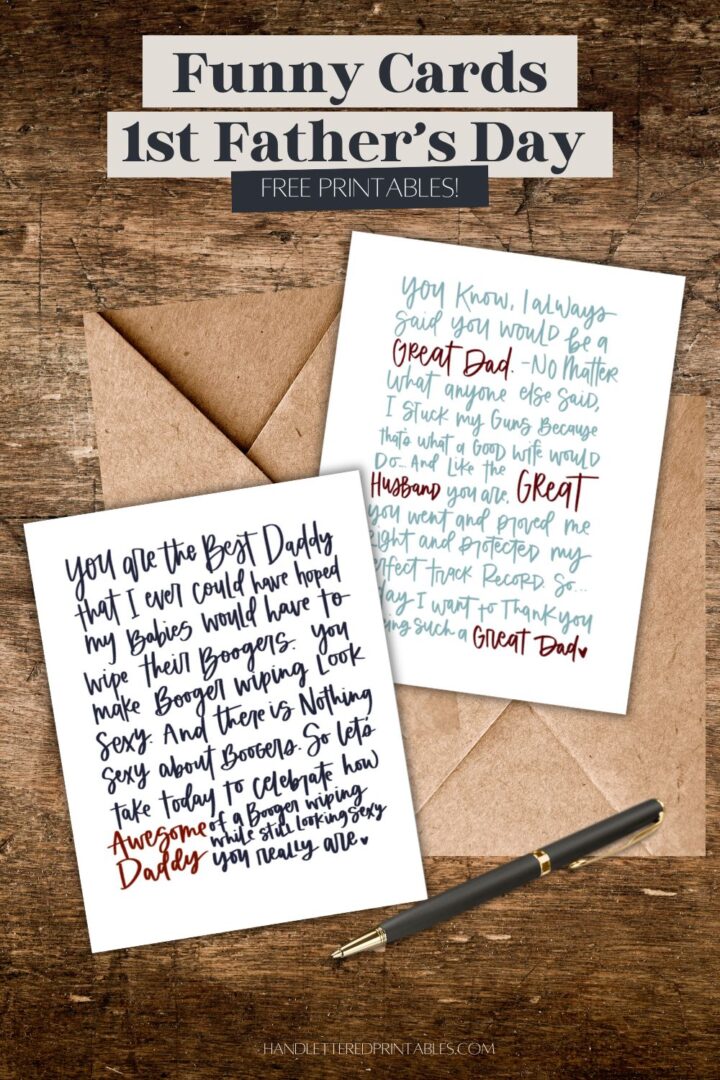 Funny Cards
1st Father's Day
FREE PRINTABLES!
you know, I always
said you would be a
Great Dad. -No Matter
what anyone else said,
I stuck my Guns Because
that's what a Good wife would
Do... And Like the
Husband you are, GREAT
you went and proved me
ight and protected my
erfect track Record. So...
day I want to Thank you
ing such a Great Dad
you are the Best Daddy
that I ever could have hoped
my Babies would have to
wipe their Boogers. you
make Booger wiping Look
sexy. And there is Nothing
sexy about Boogers. So let's
take today to celebrate how
Awesome of a Booger wiping
Daddy while still looking sexy
you really are.
HANDLETTEREDPRINTABLES.COM